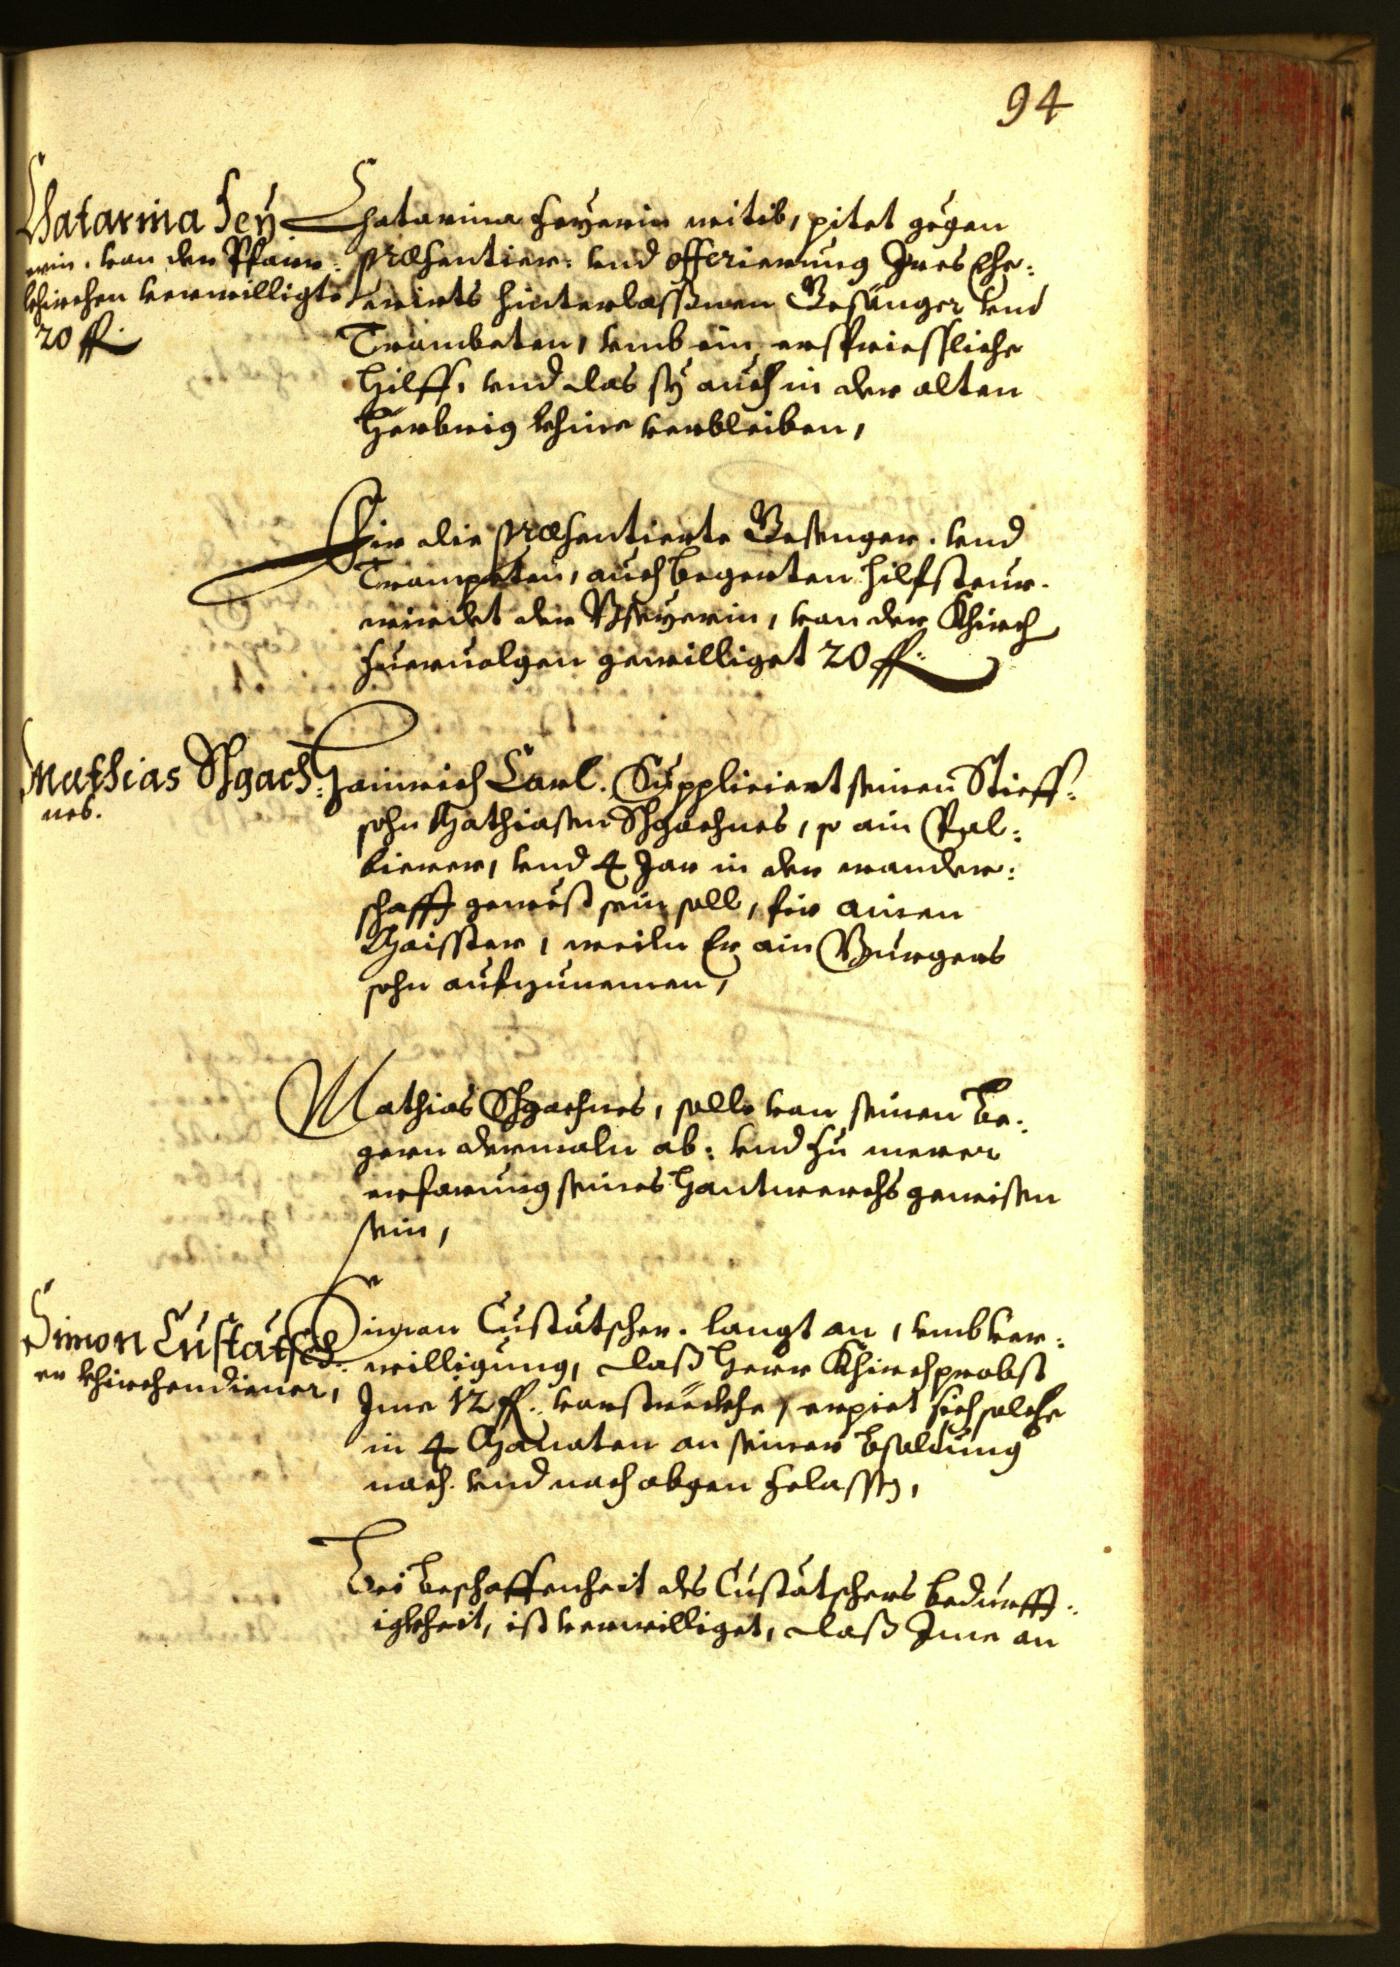 94
Chatarina Fey¬
erin. von der Pfarr¬
khirchen verwilligte
20 fl.
Chatarina Feyerin witib, pitet gegen
præsentier: vnd offerierung Jres Ehe:
wirts hinterlassnen Gesänger vnd
Trombeten, vmb ein erspriessliche
hilff, vnd das sy auch in der alten
Herbrig khine verbleiben,
Fir die præsentierte Gesenger. vnd
Trampeten, auch begerten hilfsteur.
wirdet der Pfeyerin, von der Khirch
zuervolgen gewilliget 20 fl:
Mathias Schgach:
nes.
Hainrich Carl. Suppliciert seinen Stieff:
sohn Mathiasen Schgachnes, so ain Pal:
bierer, vnd 4 Jar in der wander:
schafft gewest sein soll, fir ainen
Maisster, weiln Er ain Burgers
sohn aufzunemen,
Mathias Schgachnes, solle von seinen be:
gern dermaln ab: vnd zu merer
erfarung seines Hantwerchs gewisen
sein,
Simon Custätsch:
er khirchendiener,
Simon Custätscher. langt an, vmb ver:
willigung, dass Herr Khirchprobst
Jme 12 fl. vorstreckhe, erpiet sich solche
in 4 Monaten an seiner bsoldung
nach. vnd nach abgen zelassen,
Bei beschaffenheit des Custätschers bedurfft:
igkheit, ist verwilliget, dass Jme an